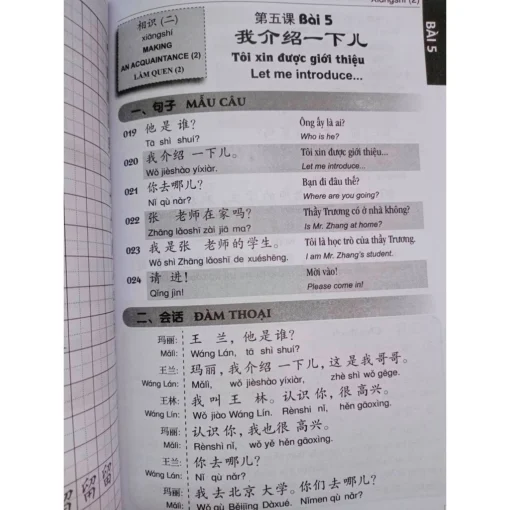 xiāngshí (2)
相识(二)
xiāngshí
MAKING
AN ACQUAINTANCE (2)
LÀM QUEN (2)
第五课 Bài 5
我介绍一下儿
Tôi xin được giới thiệu
Let me introduce...
BÀI 5
一、句子 MẪU CÂU
019 他是谁?
Tā shì shuí?
Ông ấy là ai?
Who is he?
020 我介绍 一下儿。
Wǒ jièshào yíxiàr.
Tôi xin được giới thiệu...
Let me introduce...
021 你去哪儿?
Nǐ qù nǎr?
Bạn đi đâu thế?
Where are you going?
022 张 老师在家吗?
Zhāng lǎoshī zài jiā ma?
Thầy Trương có ở nhà không?
Is Mr. Zhang at home?
023 我是张 老师的学生。
Wǒ shì Zhāng lǎoshī de xuésheng.
Tôi là học trò của thầy Trương.
I am Mr. Zhang's student.
024 请 进!
Qǐng jìn!
Mời vào!
Please come in!
二、会话 ĐÀM THOẠI
玛丽: 王 兰,他是谁?
Mǎlì: Wáng Lán, tā shì shuí?
王兰: 玛丽,我介绍 一下儿,这是我哥哥。
Wáng Lán: Mǎlì, wǒ jièshào yíxiàr, zhè shì wǒ gēge.
王林: 我叫王 林。认识你,很高兴。
Wáng Lín: Wǒ jiào Wáng Lín. Rènshi nǐ, hěn gāoxìng.
玛丽: 认识你,我也很 高兴。
Mǎlì: Rènshi nǐ, wǒ yě hěn gāoxìng.
王兰: 你去哪儿?
Wáng Lán: Nǐ qù nǎr?
玛丽: 我去北京 大学。你们去哪儿?
Mǎlì: Wǒ qù Běijīng Dàxué. Nǐmen qù nǎr?